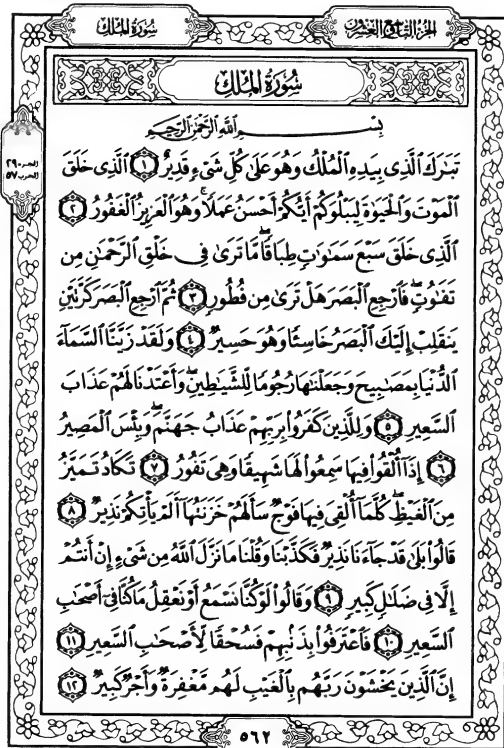 سُورَةُ المُلْكِ
الجُزْءُ التَّاسِعُ وَالعِشْرُونَ
سُورَةُ المُلْكِ
بِسْمِ ٱللَّهِ ٱلرَّحْمَٰنِ ٱلرَّحِيمِ
الجزء ٢٩
الحزب ٥٧
تَبَٰرَكَ ٱلَّذِى بِيَدِهِ ٱلْمُلْكُ وَهُوَ عَلَىٰ كُلِّ شَىْءٍ قَدِيرٌ ١ ٱلَّذِى خَلَقَ
ٱلْمَوْتَ وَٱلْحَيَوٰةَ لِيَبْلُوَكُمْ أَيُّكُمْ أَحْسَنُ عَمَلًا ۚ وَهُوَ ٱلْعَزِيزُ ٱلْغَفُورُ ٢
ٱلَّذِى خَلَقَ سَبْعَ سَمَٰوَٰتٍ طِبَاقًا ۖ مَّا تَرَىٰ فِى خَلْقِ ٱلرَّحْمَٰنِ مِن
تَفَٰوُتٍ ۖ فَٱرْجِعِ ٱلْبَصَرَ هَلْ تَرَىٰ مِن فُطُورٍ ٣ ثُمَّ ٱرْجِعِ ٱلْبَصَرَ كَرَّتَيْنِ
يَنقَلِبْ إِلَيْكَ ٱلْبَصَرُ خَاسِئًا وَهُوَ حَسِيرٌ ٤ وَلَقَدْ زَيَّنَّا ٱلسَّمَآءَ
ٱلدُّنْيَا بِمَصَٰبِيحَ وَجَعَلْنَٰهَا رُجُومًا لِّلشَّيَٰطِينِ ۖ وَأَعْتَدْنَا لَهُمْ عَذَابَ
ٱلسَّعِيرِ ٥ وَلِلَّذِينَ كَفَرُوا۟ بِرَبِّهِمْ عَذَابُ جَهَنَّمَ ۖ وَبِئْسَ ٱلْمَصِيرُ
٦ إِذَآ أُلْقُوا۟ فِيهَا سَمِعُوا۟ لَهَا شَهِيقًا وَهِىَ تَفُورُ ٧ تَكَادُ تَمَيَّزُ
مِنَ ٱلْغَيْظِ ۖ كُلَّمَآ أُلْقِىَ فِيهَا فَوْجٌ سَأَلَهُمْ خَزَنَتُهَآ أَلَمْ يَأْتِكُمْ نَذِيرٌ ٨
قَالُوا۟ بَلَىٰ قَدْ جَآءَنَا نَذِيرٌ فَكَذَّبْنَا وَقُلْنَا مَا نَزَّلَ ٱللَّهُ مِن شَىْءٍ إِنْ أَنتُمْ
إِلَّا فِى ضَلَٰلٍ كَبِيرٍ ٩ وَقَالُوا۟ لَوْ كُنَّا نَسْمَعُ أَوْ نَعْقِلُ مَا كُنَّا فِىٓ أَصْحَٰبِ
ٱلسَّعِيرِ ١٠ فَٱعْتَرَفُوا۟ بِذَنۢبِهِمْ فَسُحْقًا لِّأَصْحَٰبِ ٱلسَّعِيرِ ١١
إِنَّ ٱلَّذِينَ يَخْشَوْنَ رَبَّهُم بِٱلْغَيْبِ لَهُم مَّغْفِرَةٌ وَأَجْرٌ كَبِيرٌ ١٢
٥٦٢